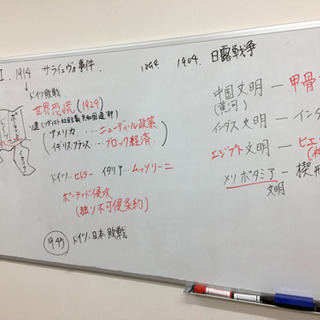 1914 サライェヴォ事件
1904 日露戦争
ドイツ敗戦
世界恐慌 (1929)
アメリカ....ニューディール政策
イギリス フランス....ブロック経済
ドイツ...ヒトラー イタリア...ムッソリーニ
ポーランド侵攻
(独ソ不可侵条約)
1945 ドイツ、日本 敗戦
中国文明 — 甲骨
(黄河)
インダス文明 — イン
エジプト文明 — ヒエ
メソポタミア — 楔形
文明